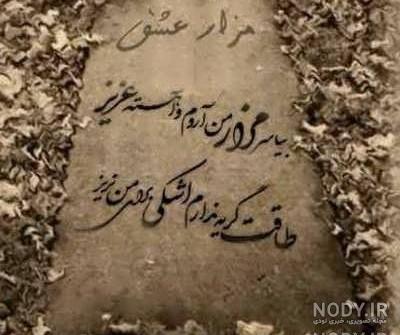 مزار عشق
بیا سر مزار من آروم و آهسته عزیز
طاقت گریه ندارم اشکی برای من نریز
NODY.IR
مجله تصویری، خبری نودی